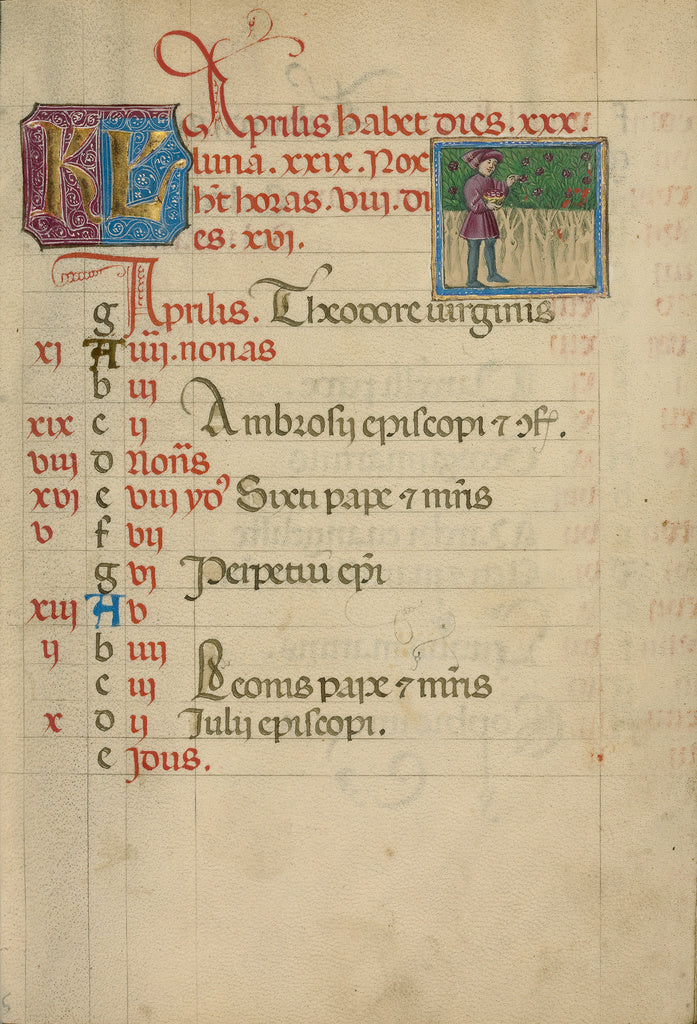 KL Aprilis habet dies .xxx.
luna .xxix. Nox
h̄t horas .viii. di
es .xvi.
g Aprilis. Theodore virginis
xi A iiij. nonas
b iij
xix c ij Ambrosij episcopi ⁊ ɔff.
viij d Non̄s
xvj e viij yd⁹ Sixti pape ⁊ mr̄is
v f vij
g vj Perpetui ep̄i
xiij A v
ij b iiij
c iij Leonis pape ⁊ mr̄is
x d ij Iulij episcopi.
e Idus.